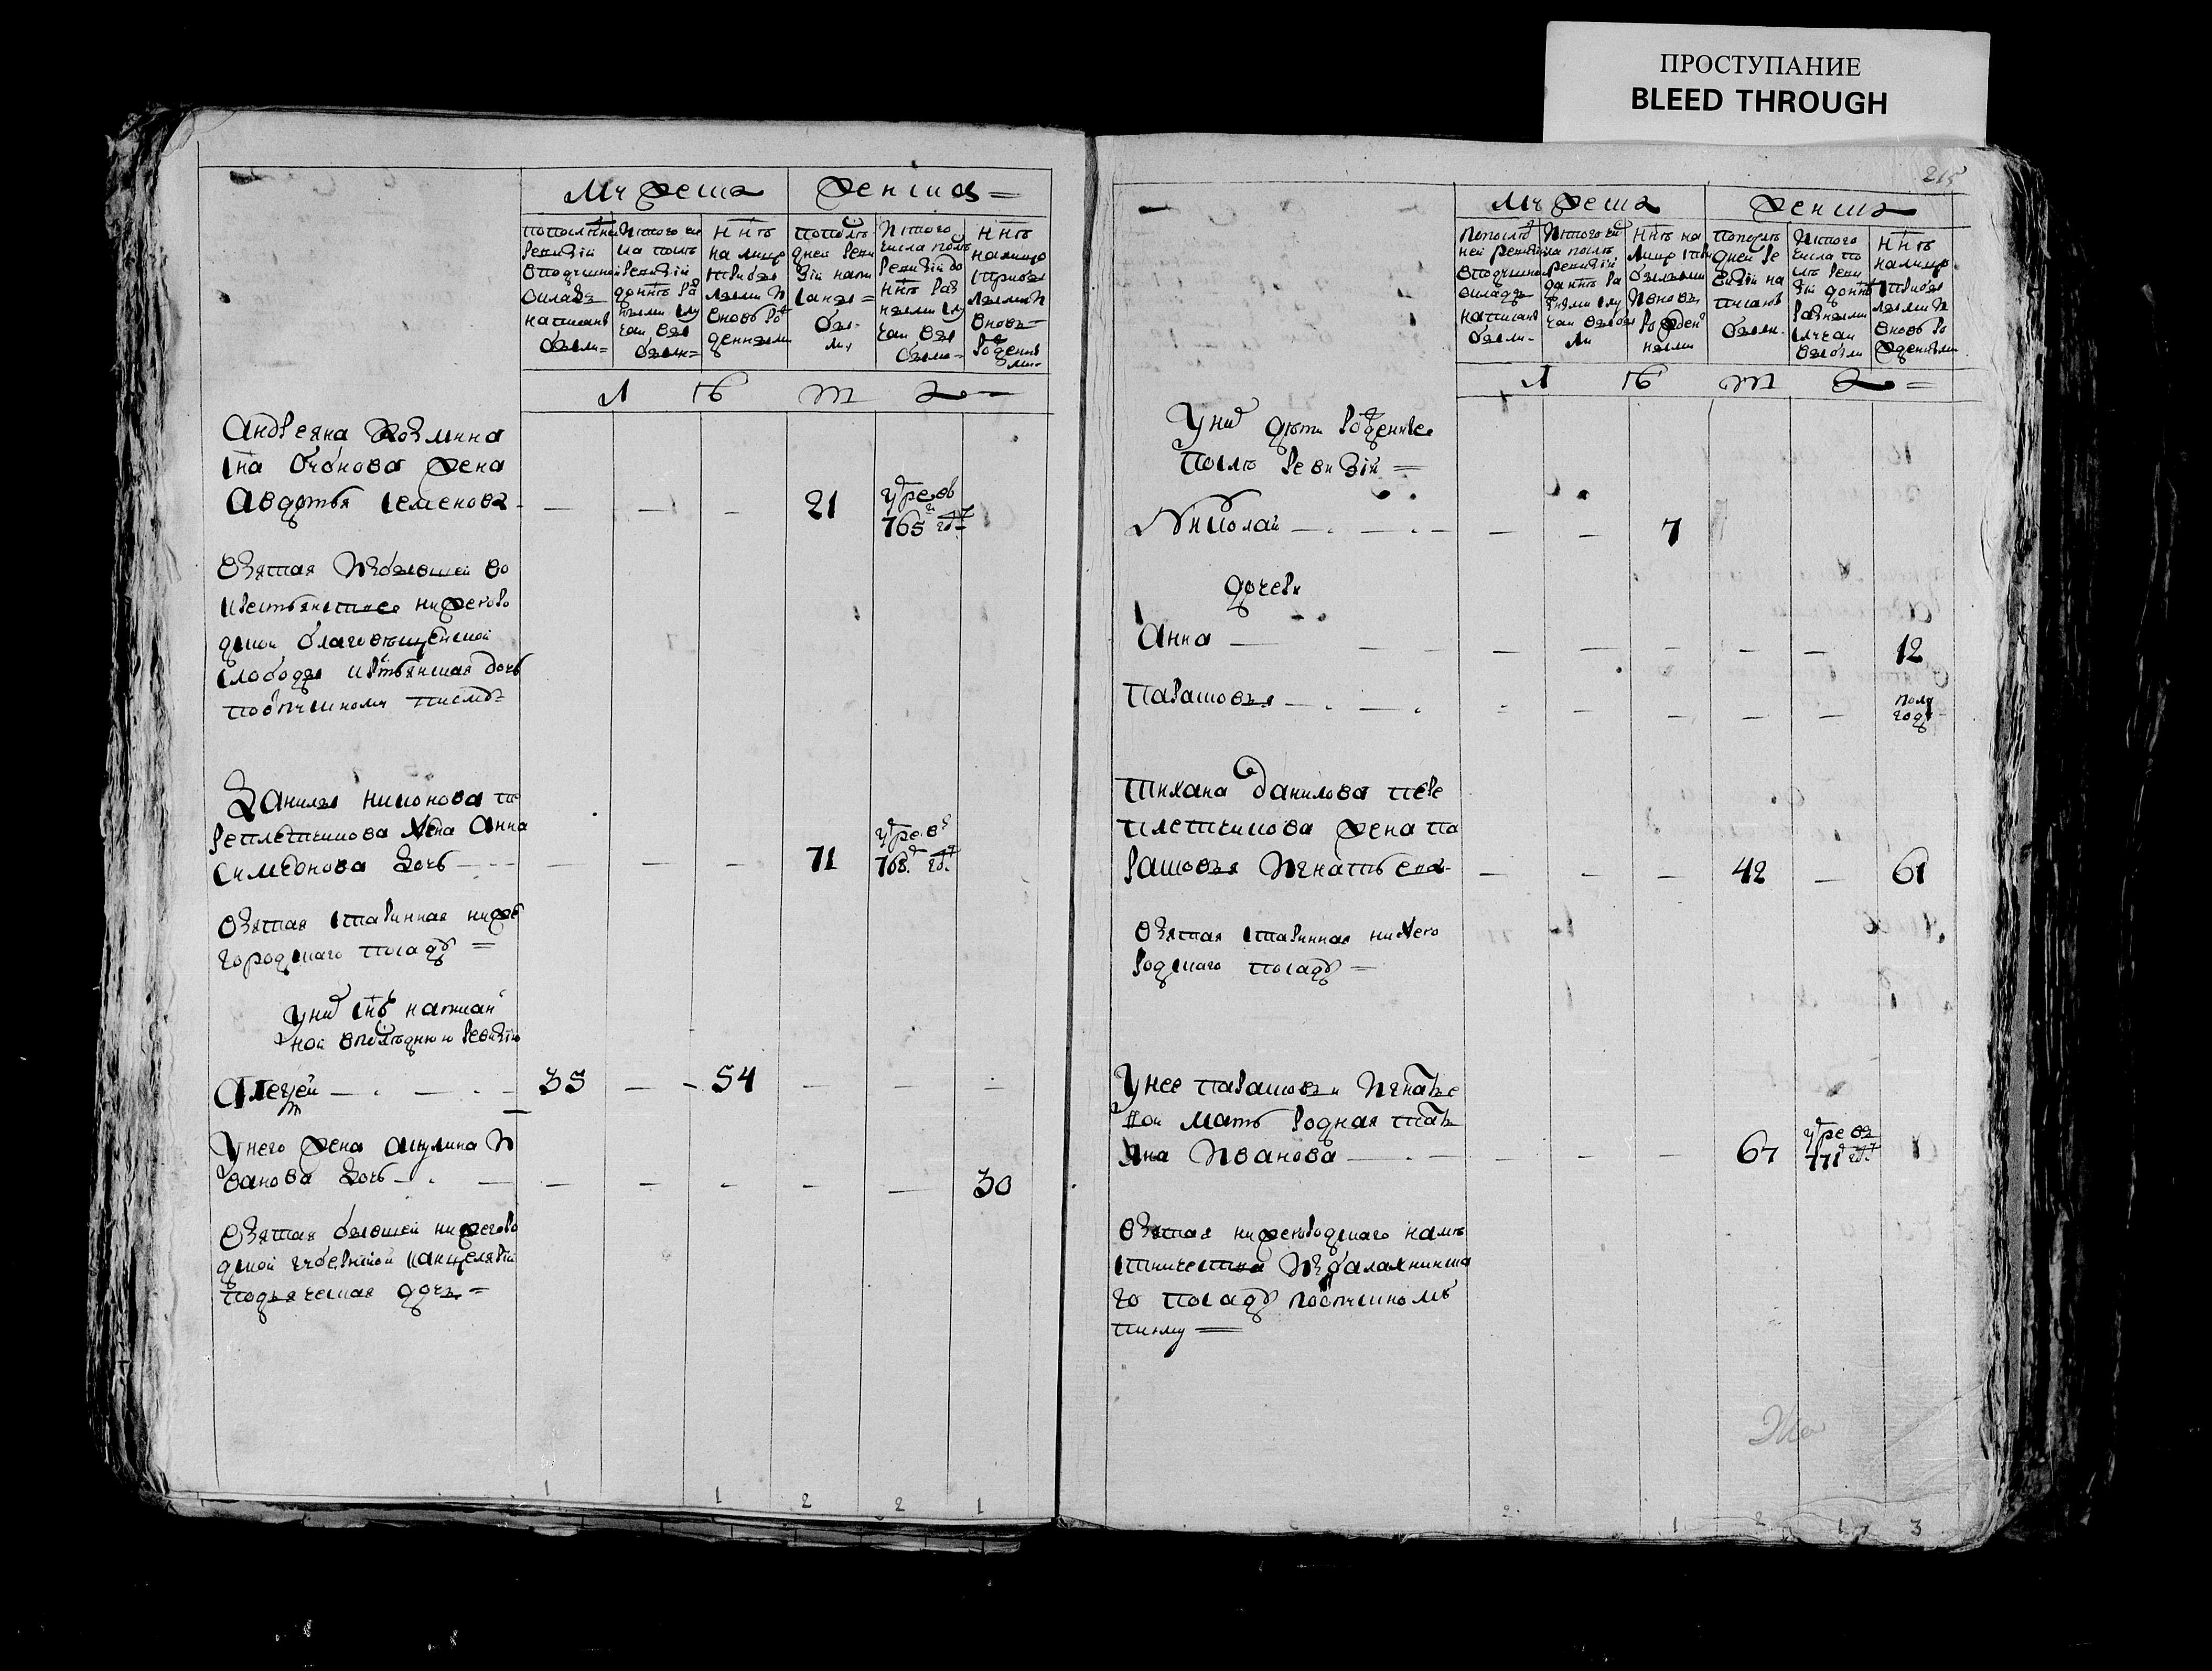 ПРОСТУПАНИЕ
BLEED THROUGH
Мужеска
Женска
попоследней ревизии в подушной оклад написаны были
Из того числа после ревизии до ныне разными случаи выбыли
Ныне на лицо с прибылыми и вновь рожденными
по последней ревизии написаны были
Из того числа после ревизии до ныне разными случаи выбыли
Ныне на лицо с прибылыми и вновь рожденными
Л Ѣ Т А
Андреяна Козмина
сна жена
Авдотья Семенова — — — 21 умре въ 765 гд
Взятая бывшей во
крестьянстве нижегоро
дской благовещенской
слободы крестьянская дочь
по отпускному писму
Данилы Никонова пе
реплетчикова жена Анна
Симеонова дочь — — — 71 умре в 768 гд
Взятая старинная ниже
городскаго посаду
У них снъ написан
ной в последнюю ревизию
Алексей — 35 — 54 — — —
У него жена Акулина И
ванова дочь — — — — — — 30
Взятая бывшей нижегоро
дской губернской канцелярии
подьяческая дочь
215
Мужеска
Женска
По последней ревизии в подушной оклад написаны были
Из того числа после ревизии до ныне разными случаи выбыли
Ныне на лицо с прибылыми и вновь рожденными
По последней ревизии написаны были
Из того числа после ревизии до ныне разными случаи выбыли
Ныне на лицо с прибылыми и вновь рожденными
Л Ѣ Т А
У них дети рожденые
после ревизии
Николай — — — 7
дочери
Анна — — — — — — 12
Парасковья — — — — — полу году
Тихана Данилова пере
плетчикова жена Па
расковья Игнатьева — — — 42 — 61
Взятая старинная нижего
родскаго посаду
У нее Парасковьи Игнатье
вой мать родная Тать
яна Иванова — — — 67 умре въ 771 гд
Взятая нижегородскаго наме
стничества из балахнинска
го посаду по отпускному
писму
1 1 2 2 1
1 2 1 3